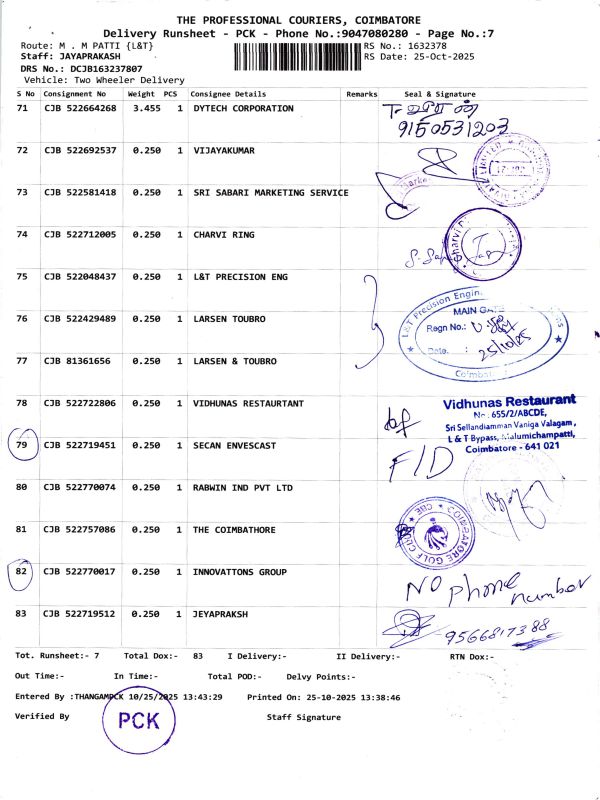 THE PROFESSIONAL COURIERS, COIMBATORE
Delivery Runsheet - PCK - Phone No.:9047080280 - Page No.:7
Route: M . M PATTI {L&T} RS No.: 1632378
Staff: JAYAPRAKASH RS Date: 25-Oct-2025
DRS No.: DCJB163237807
Vehicle: Two Wheeler Delivery
S No Consignment No Weight PCS Consignee Details Remarks Seal & Signature
71 CJB 522664268 3.455 1 DYTECH CORPORATION
9150531203
72 CJB 522692537 0.250 1 VIJAYAKUMAR
73 CJB 522581418 0.250 1 SRI SABARI MARKETING SERVICE
74 CJB 522712005 0.250 1 CHARVI RING
Charvi
75 CJB 522048437 0.250 1 L&T PRECISION ENG
L&T Precision Engin
76 CJB 522429489 0.250 1 LARSEN TOUBRO
MAIN GATE
Regn No.:
Date. : 25/10/25
Coimbat
77 CJB 81361656 0.250 1 LARSEN & TOUBRO
78 CJB 522722806 0.250 1 VIDHUNAS RESTAURTANT
Vidhunas Restaurant
No. 655/2/ABCDE,
Sri Sellandiamman Vaniga Valagam,
L & T Bypass, Malumichampatti,
Coimbatore - 641 021
79 CJB 522719451 0.250 1 SECAN ENVESCAST
F/D
80 CJB 522770074 0.250 1 RABWIN IND PVT LTD
81 CJB 522757086 0.250 1 THE COIMBATHORE
COIMBATORE GOLF CLUB
CBE
82 CJB 522770017 0.250 1 INNOVATTONS GROUP
NO phone number
83 CJB 522719512 0.250 1 JEYAPRAKSH
9566817388
Tot. Runsheet:- 7 Total Dox:- 83 I Delivery:- II Delivery:- RTN Dox:-
Out Time:- In Time:- Total POD:- Delvy Points:-
Entered By :THANGAMPCK 10/25/2025 13:43:29 Printed On: 25-10-2025 13:38:46
Verified By PCK Staff Signature